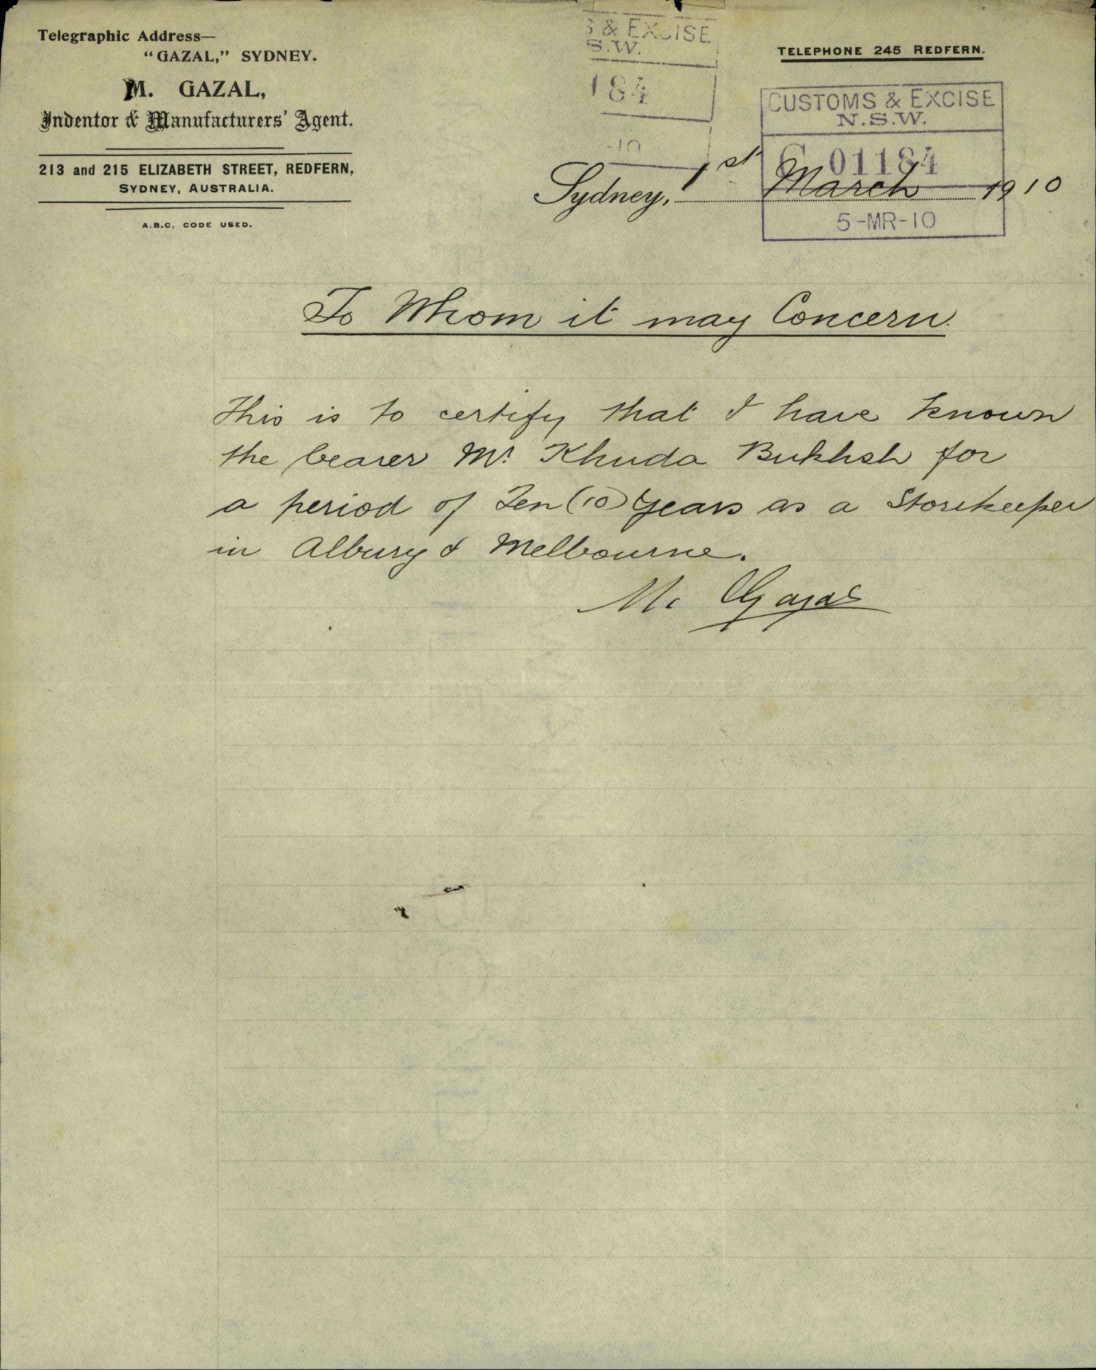 Telegraphic Address—
"GAZAL," SYDNEY.
M. GAZAL,
Indentor & Manufacturers' Agent.
213 and 215 ELIZABETH STREET, REDFERN,
SYDNEY, AUSTRALIA.
A.B.C. CODE USED.
S & EXCISE
S.W.
184
-10
TELEPHONE 245 REDFERN.
CUSTOMS & EXCISE
N.S.W.
C 01184
5-MR-10
Sydney, 1st March 1910
To Whom it may Concern.
This is to certify that I have known
the bearer Mr Khuda Bukhsh for
a period of Ten (10) years as a Storekeeper
in Albury & Melbourne.
M. Gazal